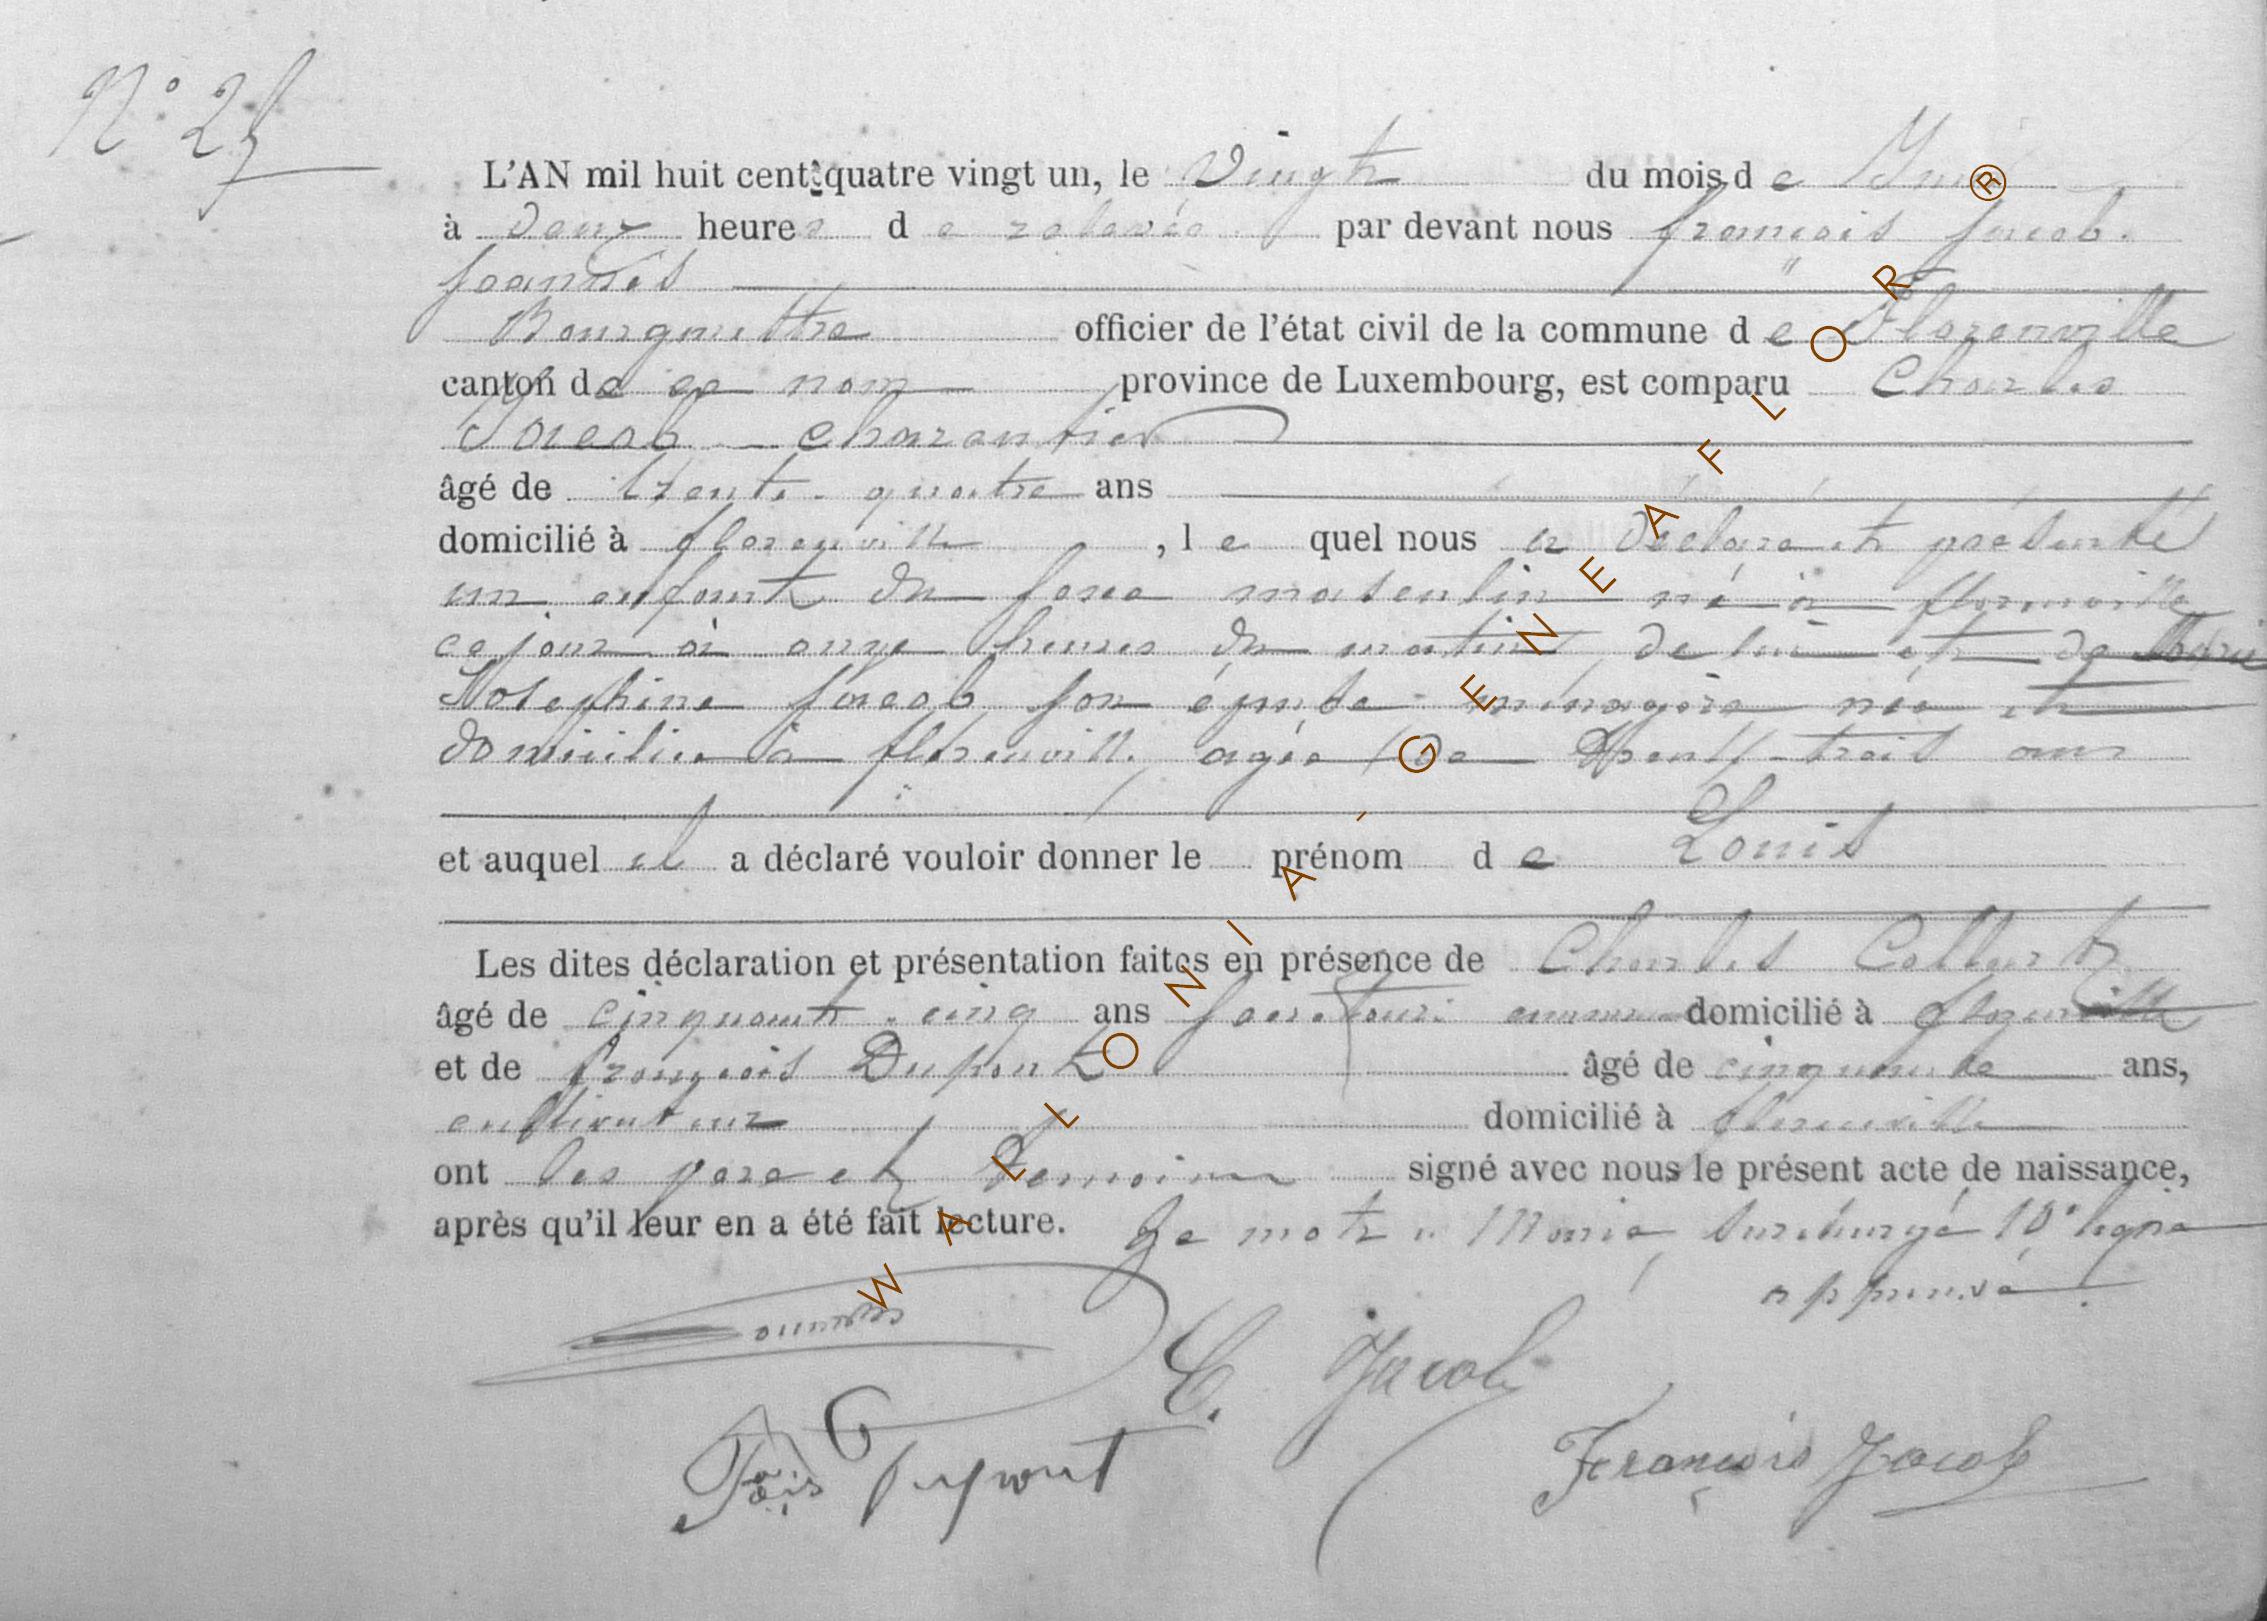 N° 25
L'AN mil huit cent quatre vingt un, le Vingt du mois de
à deux heures de relevée par devant nous françois Jacob.
Joannès
Bourgmestre officier de l'état civil de la commune de Florenville
canton de ce nom province de Luxembourg, est comparu Charles
Jacob charpentier
âgé de trente-quatre ans
domicilié à florenville, le quel nous a déclaré et présenté
un enfant du sexe masculin né à florenville
ce jour à onze heures du matin, de lui et de Marie
Josephine Jacob son épouse ménagère née et
domiciliée à florenville, agée de trente-trois ans
et auquel il a déclaré vouloir donner le prénom de Louis
Les dites déclaration et présentation faites en présence de Charles Collart
âgé de cinquante-cinq ans domicilié à florenville
et de françois Dupont âgé de cinquante ans,
cultivateur domicilié à florenville
ont les père et témoins signé avec nous le présent acte de naissance,
après qu'il leur en a été fait lecture. Le mot "Marie" surchargé 10e ligne
approuvé.
C. Jacob
Fçois Dupont
François Jacob
WALLONIA-GENEAFLOR®